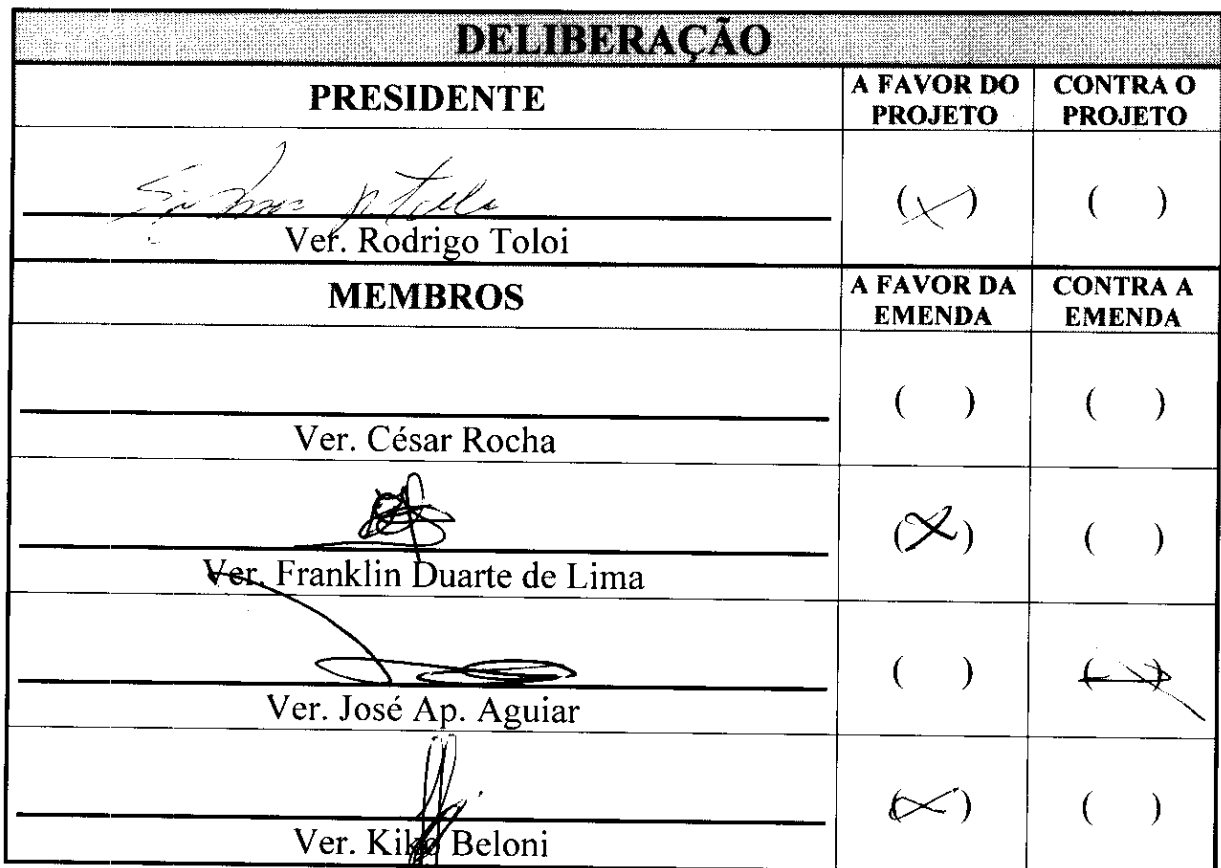 DELIBERAÇÃO
PRESIDENTE
A FAVOR DO PROJETO
CONTRA O PROJETO
(X) ( )
Ver. Rodrigo Toloi
MEMBROS
A FAVOR DA EMENDA
CONTRA A EMENDA
( ) ( )
Ver. César Rocha
(X) ( )
Ver. Franklin Duarte de Lima
( ) (X)
Ver. José Ap. Aguiar
(X) ( )
Ver. Kiko Beloni